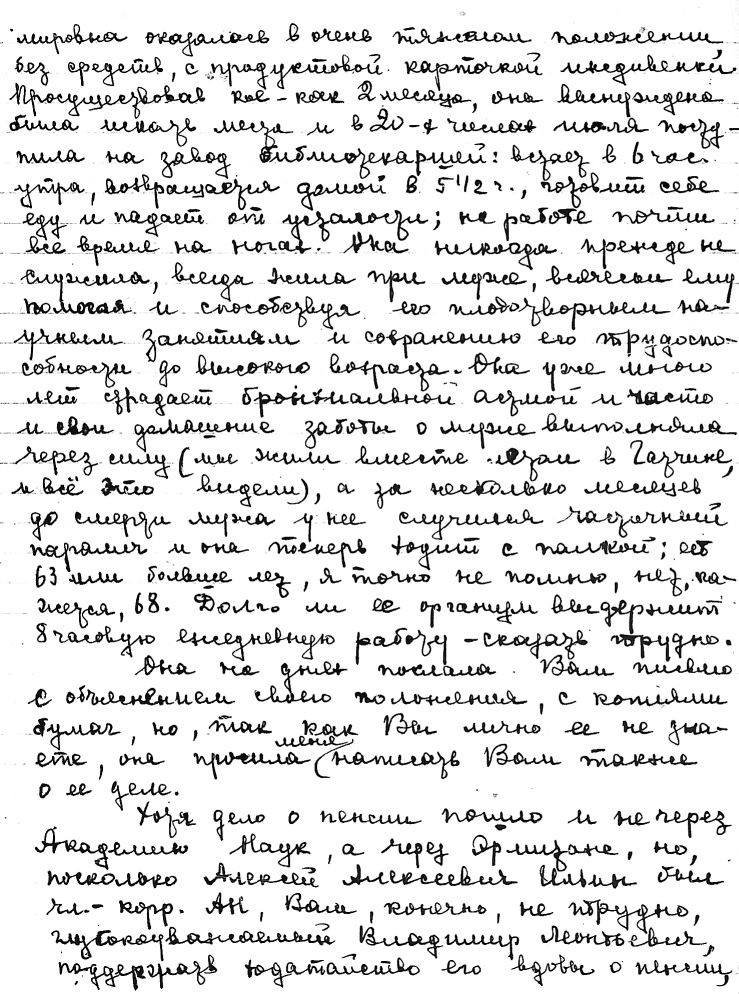 мировна оказалась в очень тяжелом положении,
без средств, с продуктовой карточкой иждивенки.
Просуществовав кое-как 2 месяца, она вынуждена
была искать места и в 20-х числах июля посту-
пила на завод библиотекаршей: встает в 6 час.
утра, возвращается домой в 5 1/2 ч., готовит себе
еду и падает от усталости; на работе почти
всё время на ногах. Она никогда прежде не
служила, всегда жила при муже, всячески ему
помогая и способствуя его плодотворным на-
учным занятиям и сохранению его трудоспо-
собности до высокого возраста. Она уже много
лет страдает бронхиальной астмой и часто
и свои домашние заботы о муже выполняла
через силу (мы жили вместе летом в Гатчине,
и всё это видели), а за несколько месяцев
до смерти мужа у нее случился частичный
паралич и она теперь ходит с палкой; ей
63 или больше лет, я точно не помню, нет, ка-
жется, 68. Долго ли ее организм выдержит
8 часовую ежедневную работу - сказать трудно.
Она на днях послала Вам письмо
с объяснением своего положения, с копиями
бумаг, но, так как Вы лично ее не зна-
ете, она просила меня написать Вам также
о ее деле.
Хотя дело о пенсии пошло и не через
Академию Наук, а через Эрмитаж, но,
посколько Алексей Алексеевич Ильин был
чл.-корр. АН, Вам, конечно, не трудно,
глубокоуважаемый Владимир Леонтьевич,
поддержать ходатайство его вдовы о пенсии,